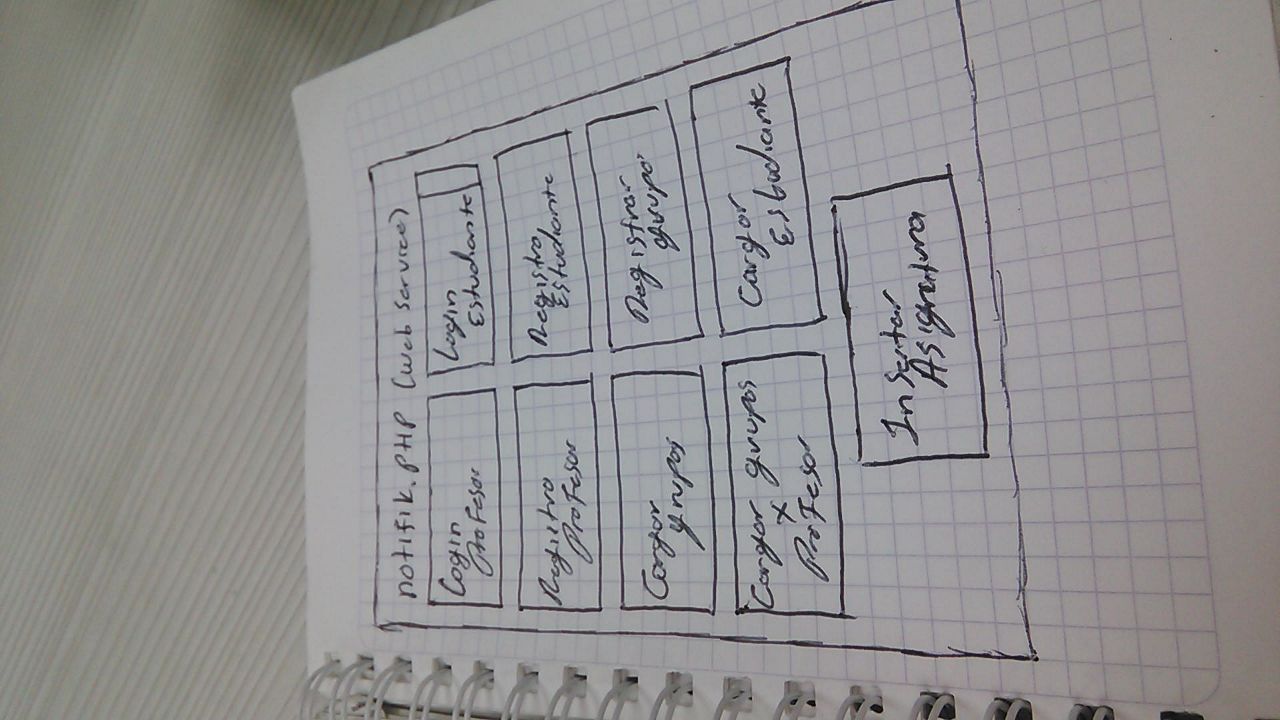 notifik.PHP (web service)
Login
Profesor
Login
Estudiante
Registro
Profesor
Registro
Estudiante
Cargar
grupos
Registrar
grupos
Cargar grupos
x
Profesor
Cargar
Estudiante
Insertar
Asignatura